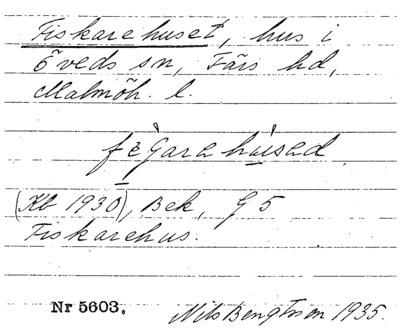 Fiskarehuset, hus i
Öveds sn, Färs hd,
Malmöh. l.
(Kb 1930), Bek, G 5
Fiskarehus.
Nr 5603. Nils Bengtsson 1935.